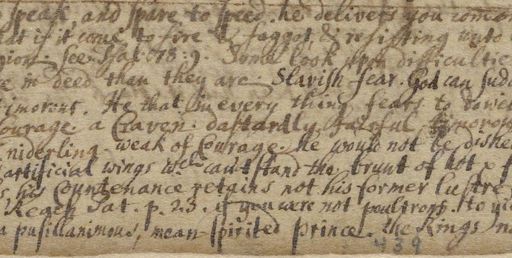 speak, and spare to speed. he delivers you
if it come to fire & faggot, & resisting unto
see Psal. 78:9 Some look upon difficulties
in deed than they are. Slavish fear. God can
timorous. He that in every thing fears to
Courage. a Craven. dastardly, fearful, timorous
niderling. weak of Courage. He would not be
artificial wings wch can't stand the brunt of hot
his Countenance retains not his former lustre
Sat. p. 23, if you were not poultrons. to
a pusillanimous, mean-spirited Prince. the Kings
439